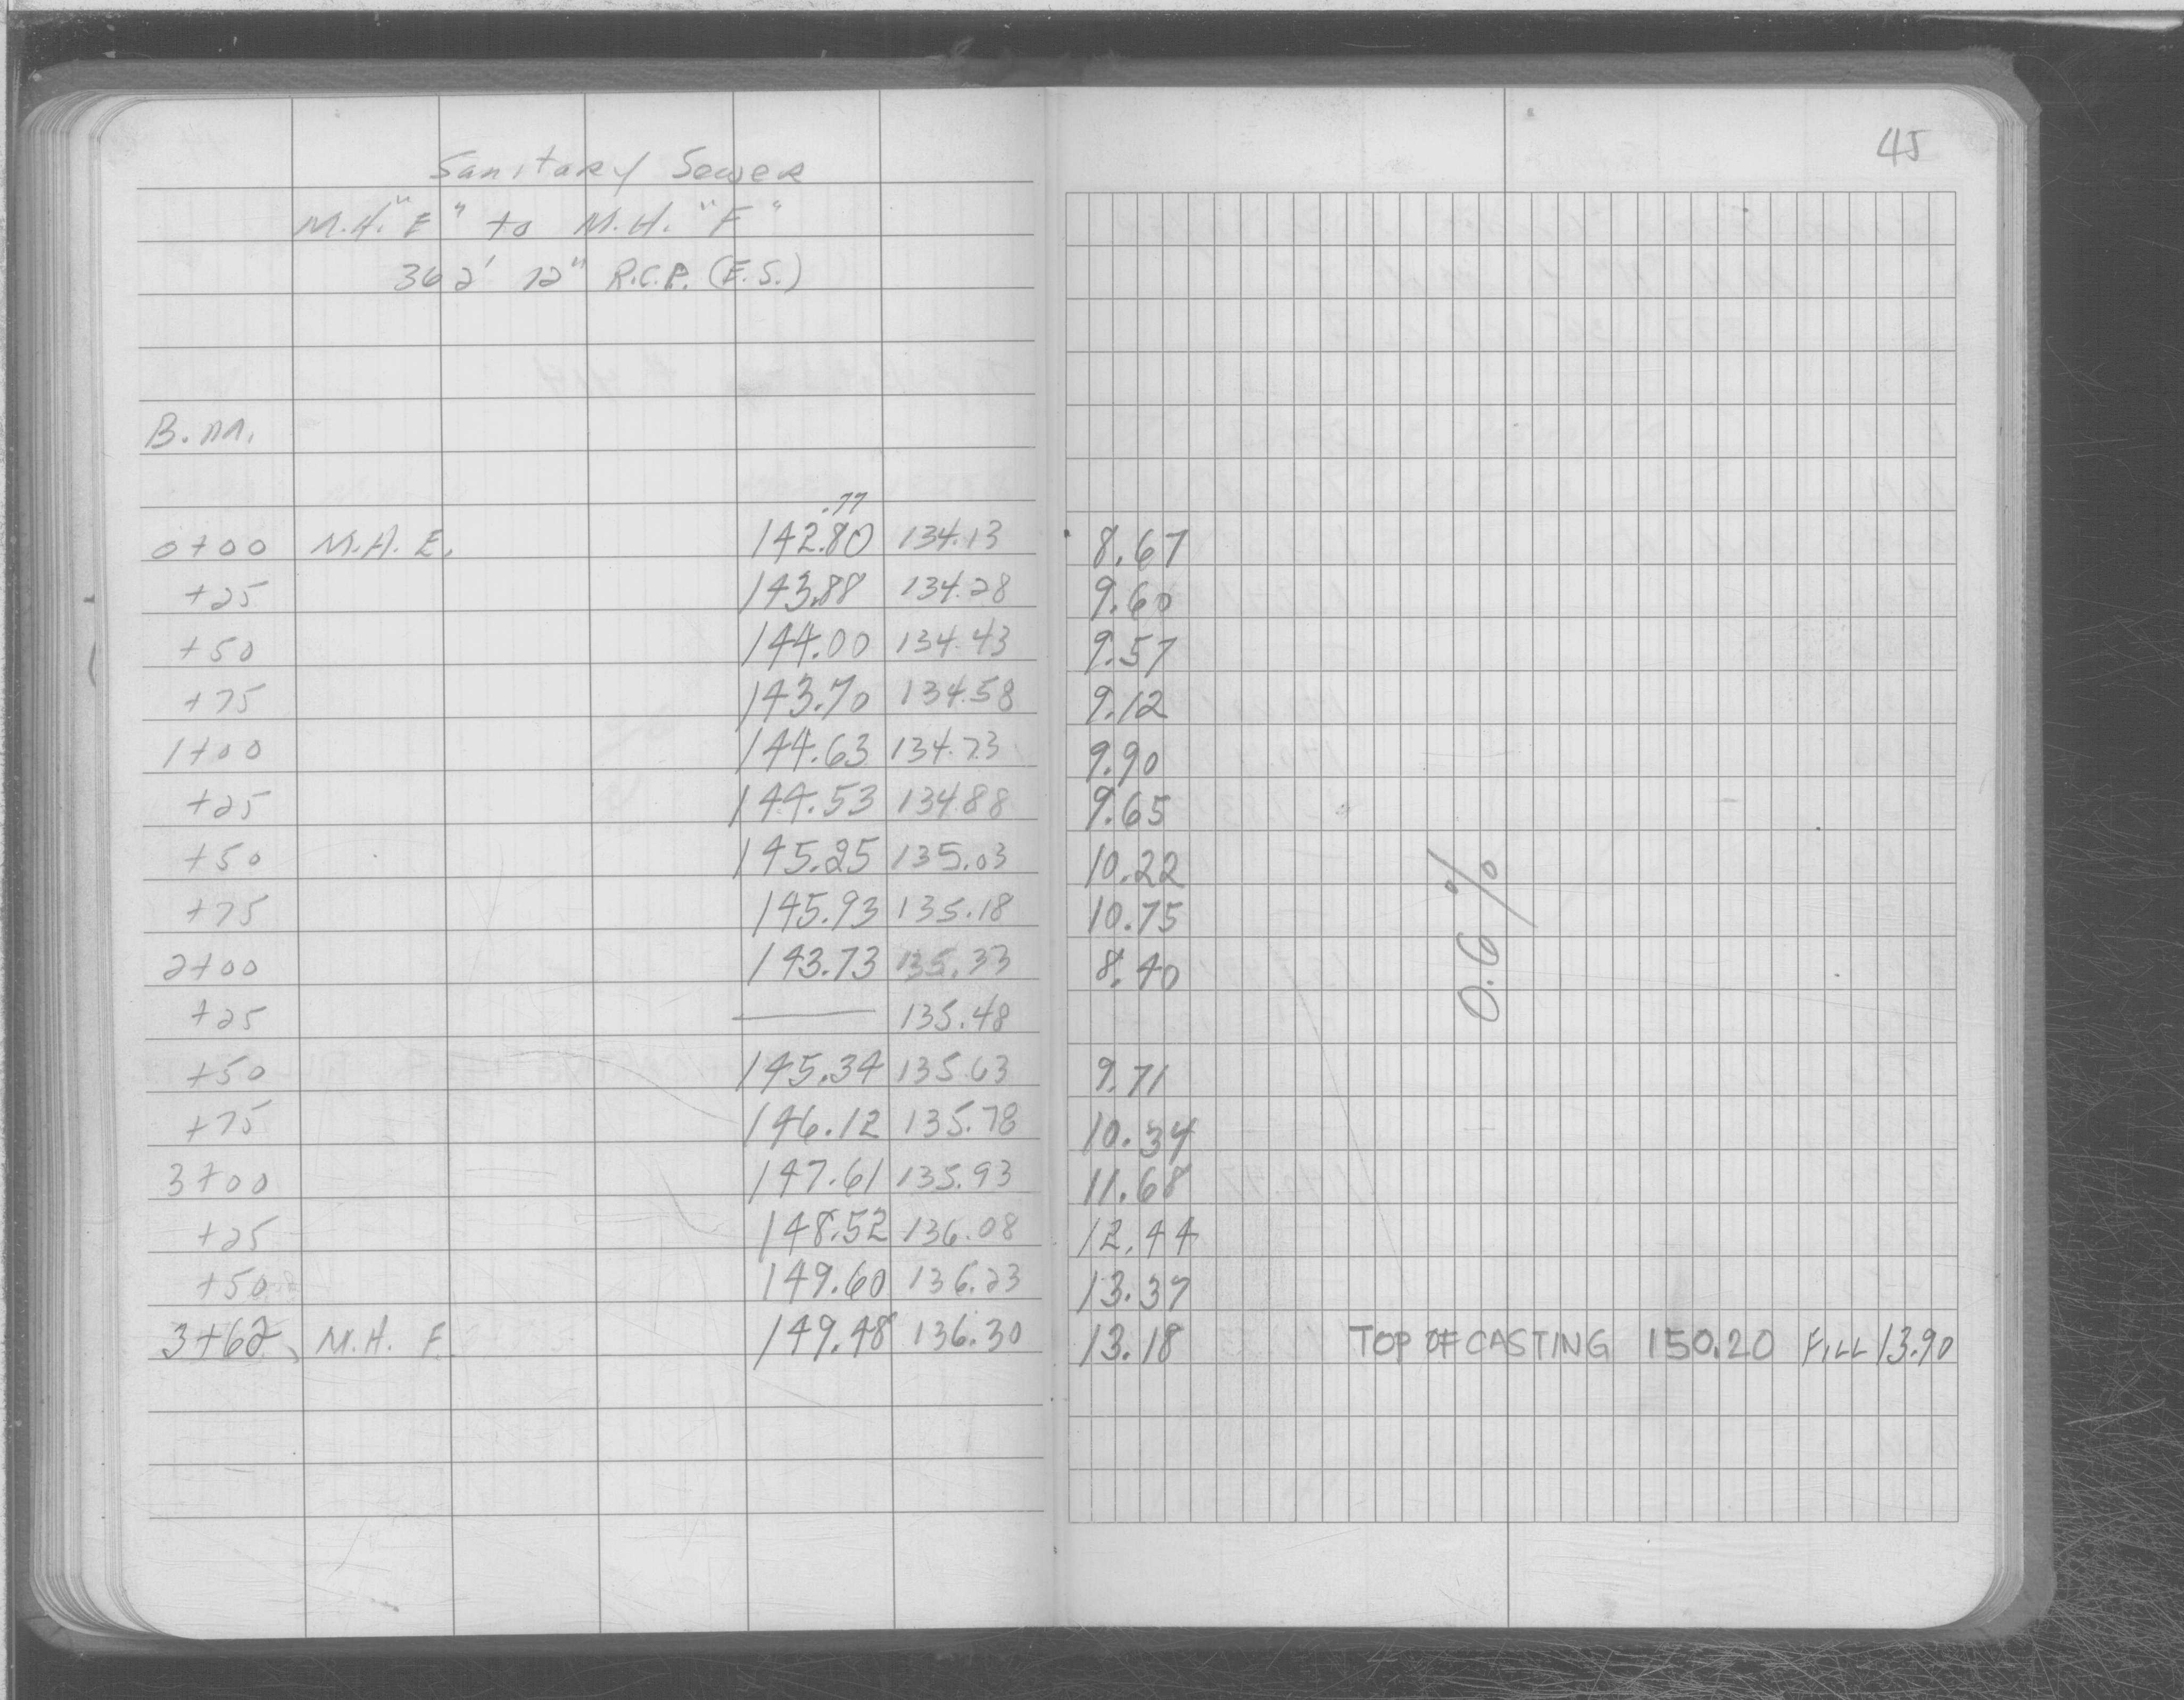 45
Sanitary Sewer
M.H. "E" to M.H. "F"
362' 12" R.C.P. (E.S.)
B.M.
.77
0+00 M.H. E. 142.80 134.13 8.67
+25 143.88 134.28 9.60
+50 144.00 134.43 9.57
+75 143.70 134.58 9.12
1+00 144.63 134.73 9.90
+25 144.53 134.88 9.65
+50 145.25 135.03 10.22
+75 145.93 135.18 10.75
2+00 143.73 135.33 8.40
+25 — 135.48
+50 145.34 135.63 9.71
+75 146.12 135.78 10.34
3+00 147.61 135.93 11.68
+25 148.52 136.08 12.44
+50 149.60 136.23 13.37
3+62 M.H. F. 149.48 136.30 13.18 TOP OF CASTING 150.20 FILL 13.90
0.6 %